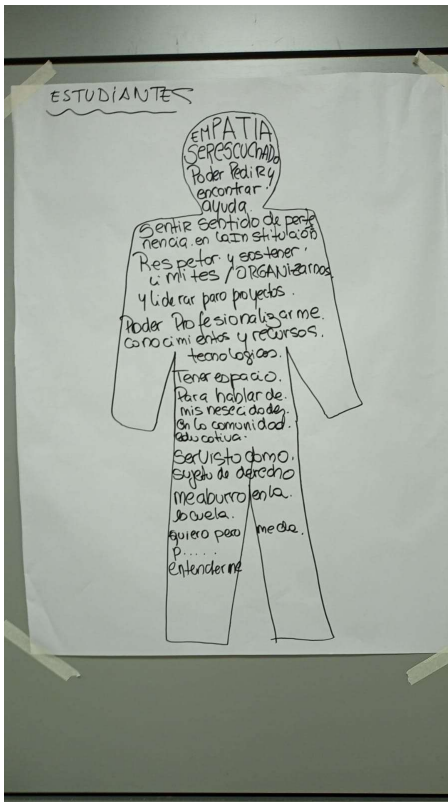 ESTUDIANTES
EMPATIA
SER ESCUCHADO
Poder Pedir y
encontrar
ayuda.
Sentir sentido de perte
nencia. en la Institución
Respetar y sostener
Limites / ORGANizarnos
y liderar para proyectos.
Poder Profesionalizarme.
conocimientos y recursos.
tecnologicos.
Tener espacio.
Para hablar de.
mis nesecidades.
en la comunidad.
educativa.
ser visto como.
sujeto de derecho
me aburro en la.
escuela.
quiero pero me da.
p.....
entenderme